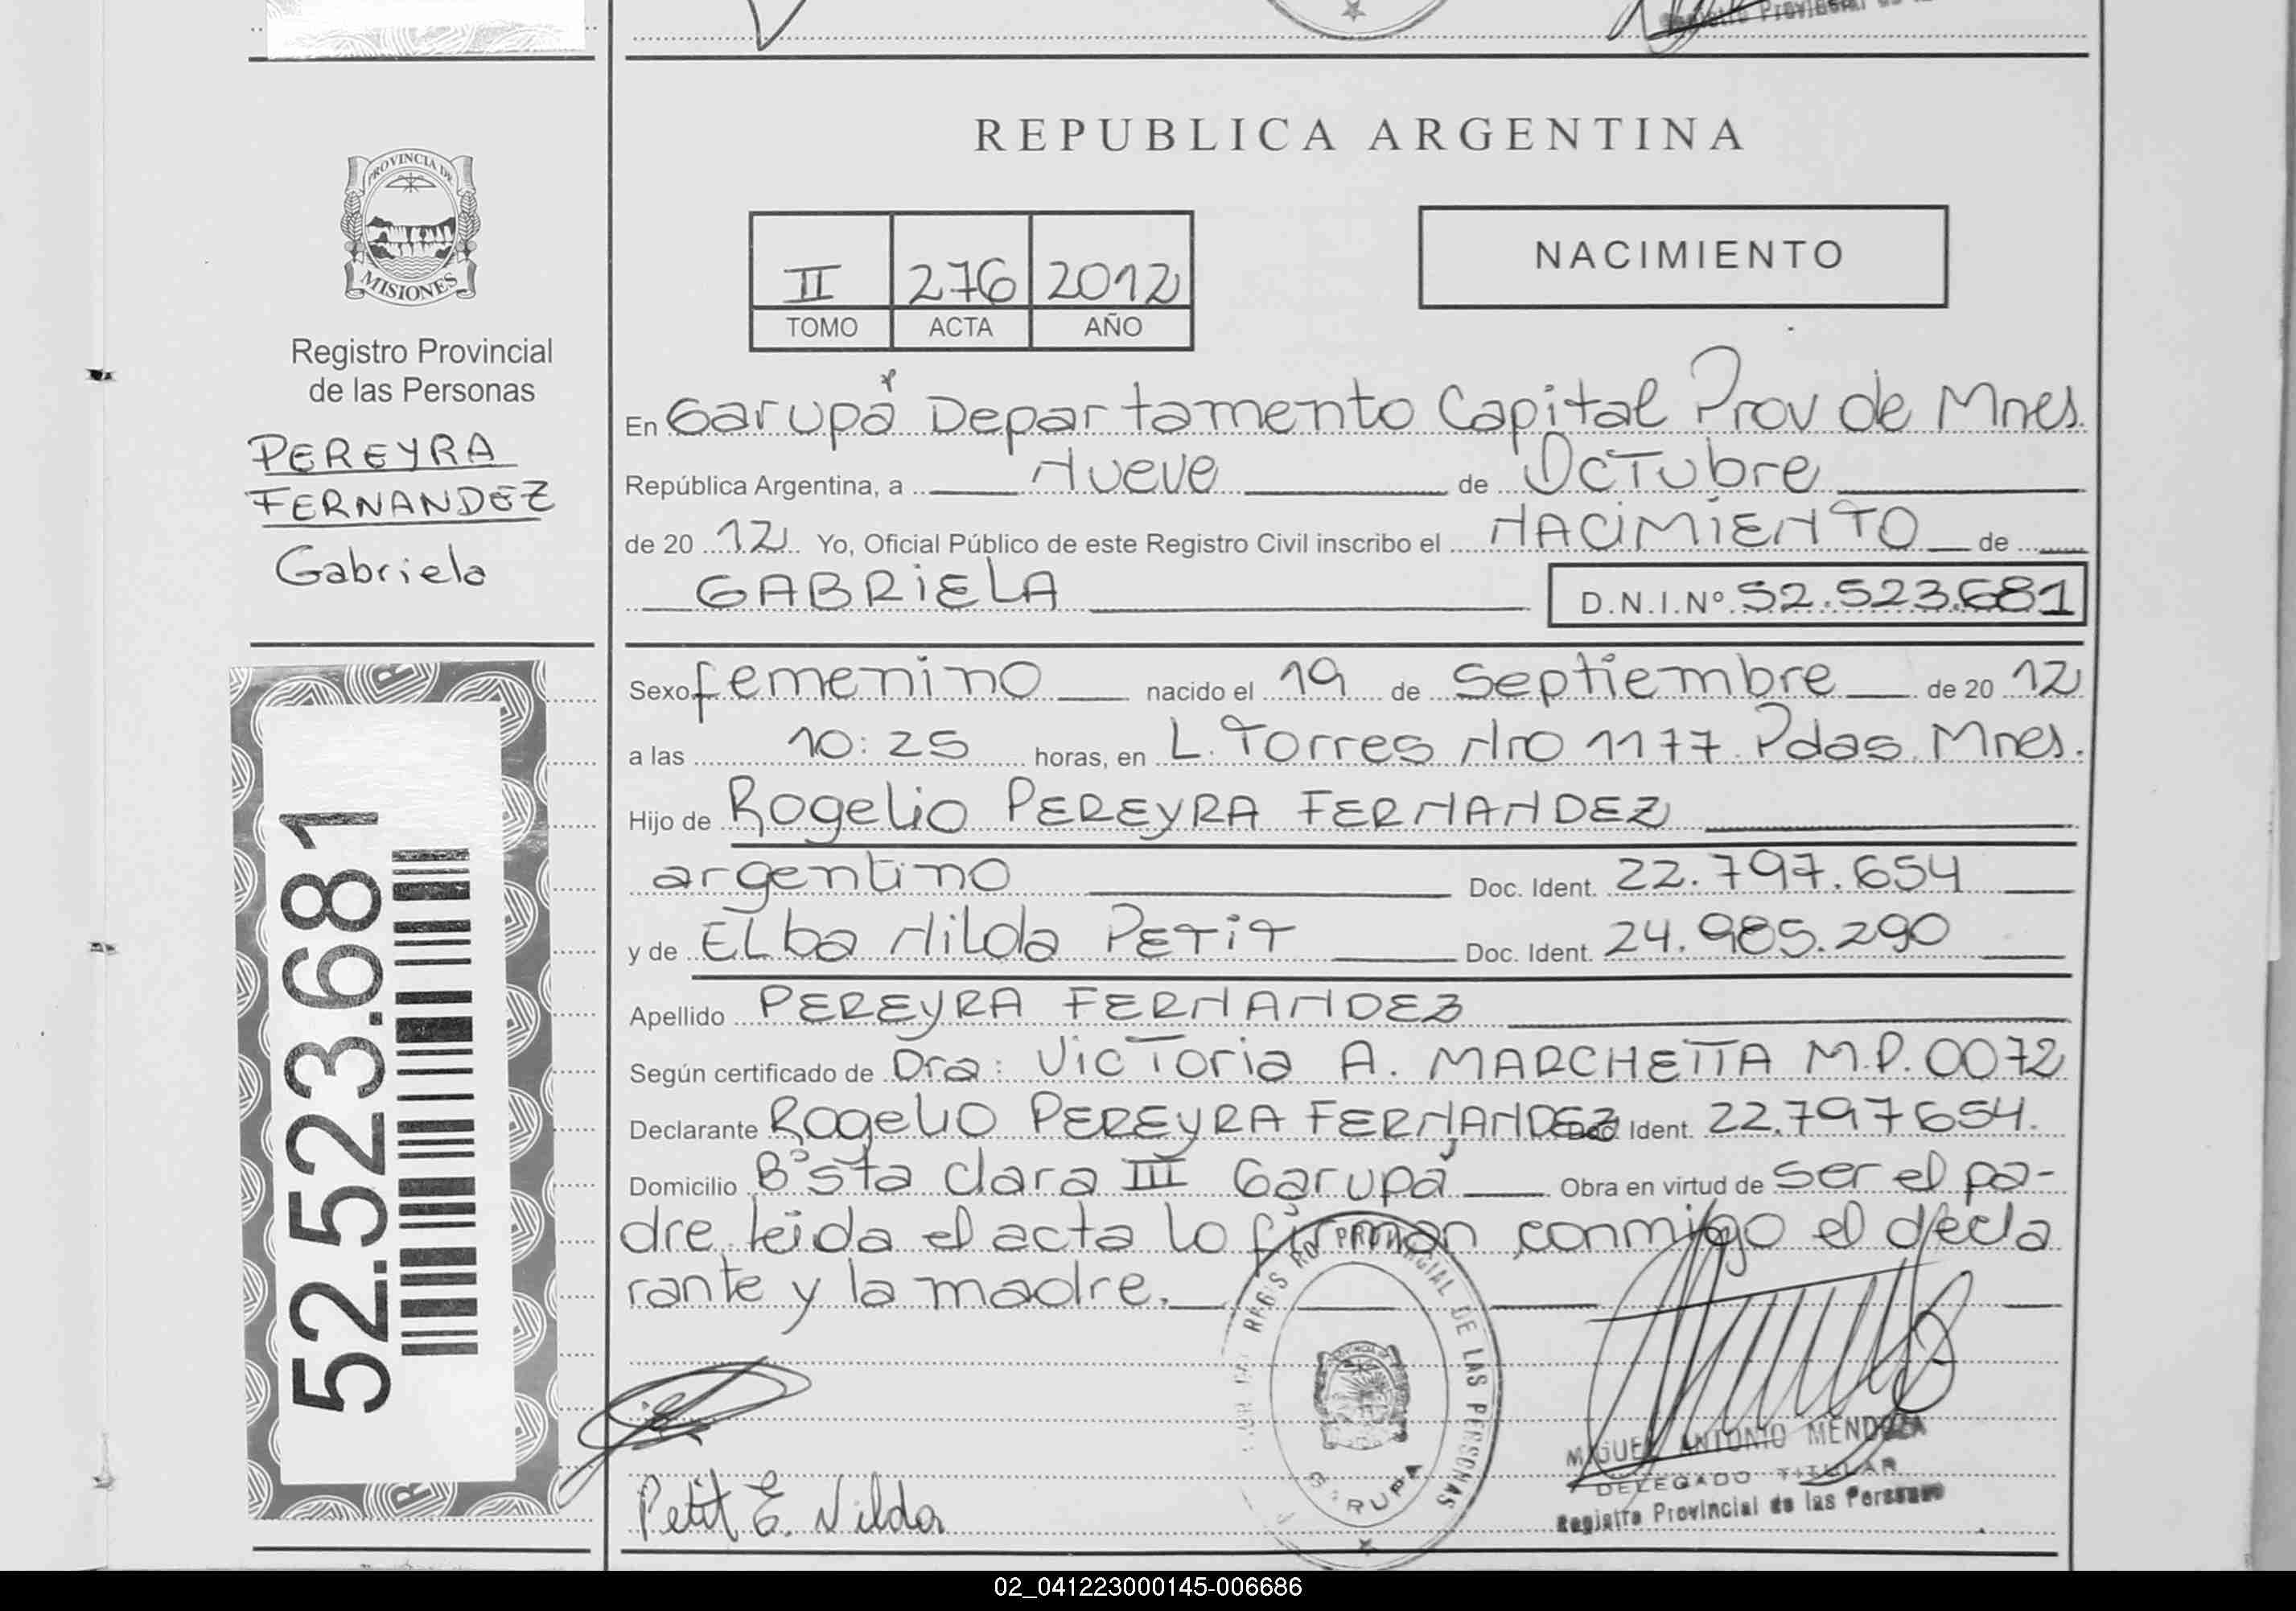 Registro Provincial de
REPUBLICA ARGENTINA
PROVINCIA DE
MISIONES
Registro Provincial
de las Personas
PEREYRA
FERNANDEZ
Gabriela
52.523.681
II 276 2012
TOMO ACTA AÑO
NACIMIENTO
En Garupá Departamento Capital Prov de Mnes.
República Argentina, a Nueve de Octubre
de 20 12 Yo, Oficial Público de este Registro Civil inscribo el NACIMIENTO de
GABRIELA D.N.I.Nº 52.523.681
Sexo femenino nacido el 19 de Septiembre de 20 12
a las 10:25 horas, en L. Torres Nro 1177. Pdas. Mnes.
Hijo de Rogelio PEREYRA FERNANDEZ
argentino Doc. Ident. 22.797.654
y de ELba Nilda PETIT Doc. Ident. 24.985.290
Apellido PEREYRA FERNANDEZ
Según certificado de Dra: Victoria A. MARCHETTA M.P. 0072
Declarante Rogelio PEREYRA FERNANDEZ Doc. Ident. 22.797654.
Domicilio Bº Sta clara III Garupá Obra en virtud de ser el pa-
dre, leida el acta lo firman conmigo el decla
rante y la madre.
REGISTRO PROVINCIAL DE LAS PERSONAS
GARUPA
MIGUEL ANTONIO MENDOZA
DELEGADO TITULAR
Registro Provincial de las Personas
Petit E. Nilda
02_041223000145-006686